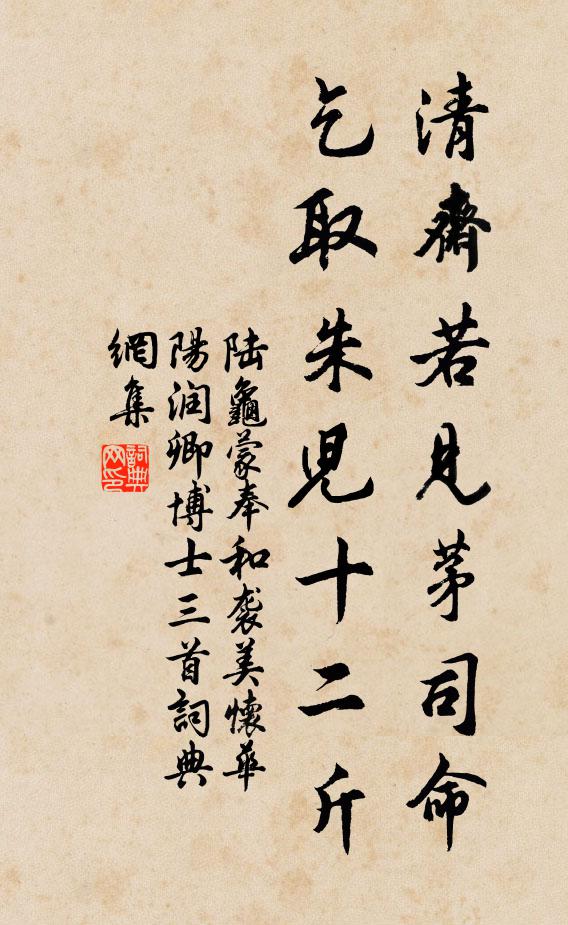 清齋若見茅司命
乞取朱児十二斤
陆龜蒙奉和袭美懷華
陽润卿博士三首詞典
網集
詞典
网印